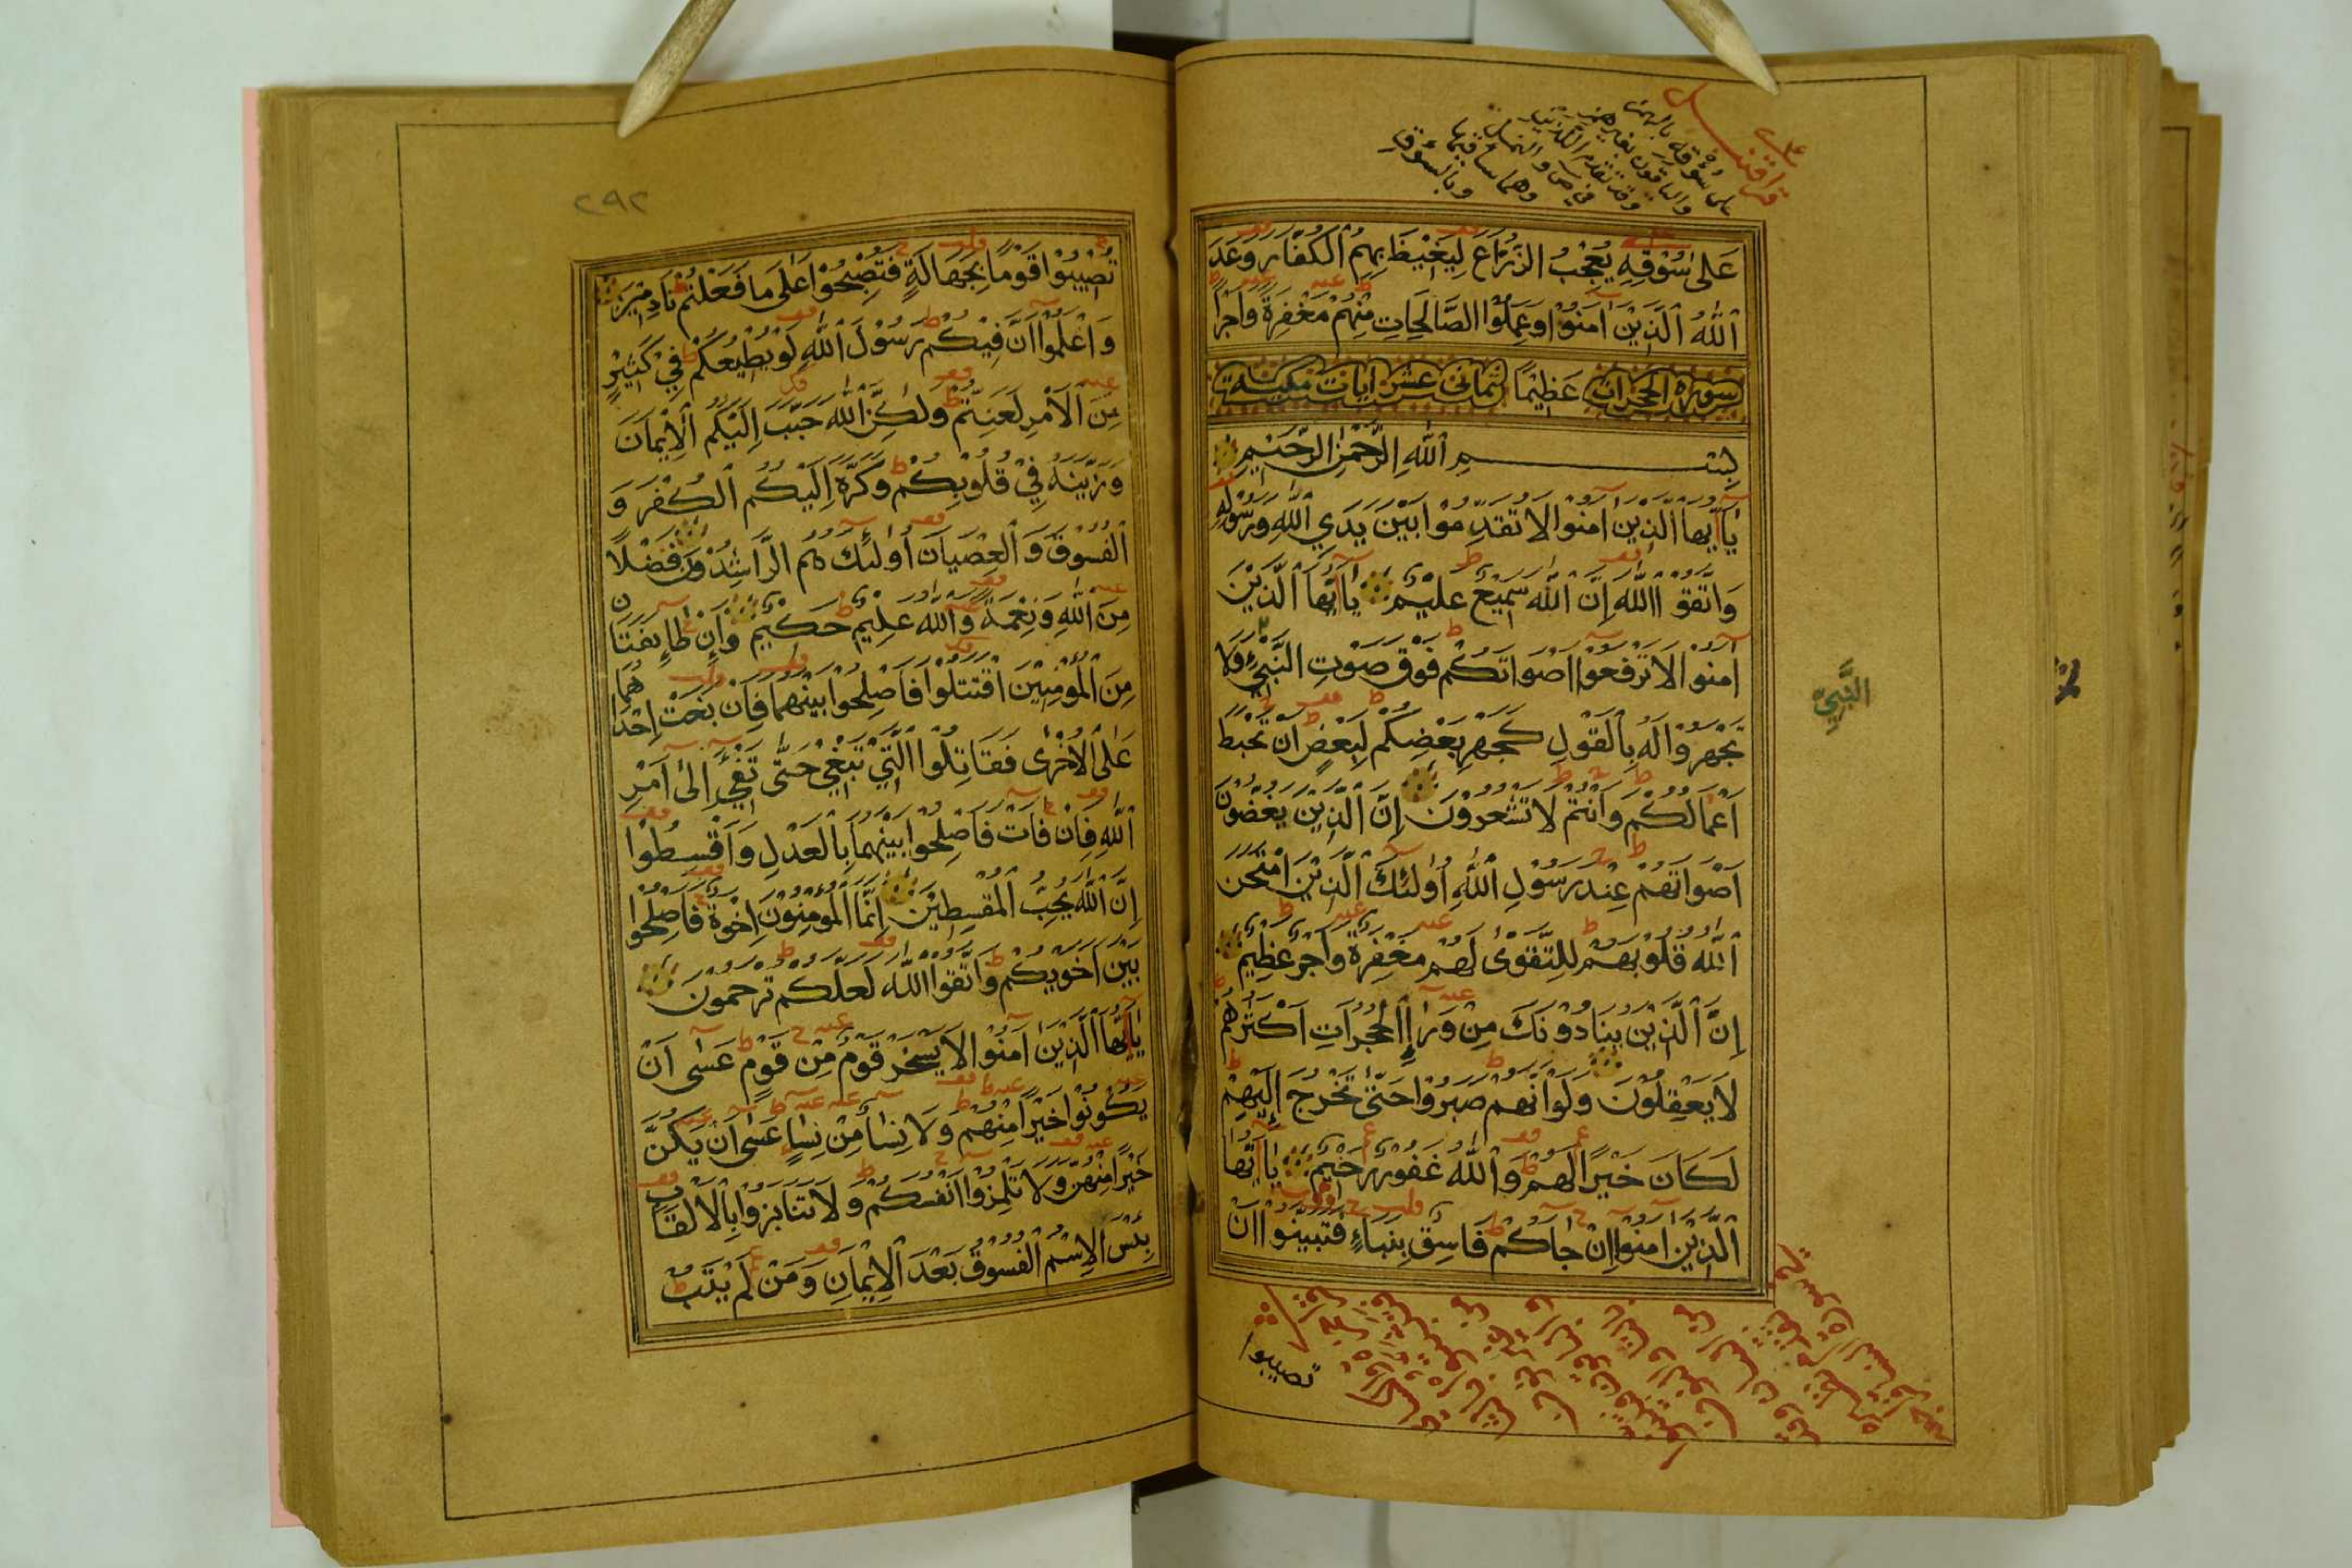 على سُؤْقِهِ بالهمز
والباقون بغير همز
عَلَىٰ سُوْقِهِ يُعْجِبُ الزُّرَّاعَ لِيَغِيْظَ بِهِمُ الْكُفَّارَ وَعَدَ
اللهُ الَّذِيْنَ اٰمَنُوْا وَعَمِلُوا الصَّالِحَاتِ مِنْهُمْ مَغْفِرَةً وَاَجْرًا
سورة الحجرات عَظِيْمًا ثمانى عشر ايات مكية
بِسْمِ اللهِ الرَّحْمٰنِ الرَّحِيْمِ
يَا اَيُّهَا الَّذِيْنَ اٰمَنُوْا لَا تُقَدِّمُوْا بَيْنَ يَدَيِ اللهِ وَرَسُوْلِهِ
وَاتَّقُوا اللهَ اِنَّ اللهَ سَمِيْعٌ عَلِيْمٌ يَا اَيُّهَا الَّذِيْنَ
اٰمَنُوْا لَا تَرْفَعُوْا اَصْوَاتَكُمْ فَوْقَ صَوْتِ النَّبِيِّ وَلَا
النَّبِيّ
تَجْهَرُوْا لَهُ بِالْقَوْلِ كَجَهْرِ بَعْضِكُمْ لِبَعْضٍ اَنْ تَحْبَطَ
اَعْمَالُكُمْ وَاَنْتُمْ لَا تَشْعُرُوْنَ اِنَّ الَّذِيْنَ يَغُضُّوْنَ
اَصْوَاتَهُمْ عِنْدَ رَسُوْلِ اللهِ اُولٰئِكَ الَّذِيْنَ امْتَحَنَ
اللهُ قُلُوْبَهُمْ لِلتَّقْوٰى لَهُمْ مَغْفِرَةٌ وَاَجْرٌ عَظِيْمٌ
اِنَّ الَّذِيْنَ يُنَادُوْنَكَ مِنْ وَرَاءِ الْحُجُرَاتِ اَكْثَرُهُمْ
لَا يَعْقِلُوْنَ وَلَوْ اَنَّهُمْ صَبَرُوْا حَتّٰى تَخْرُجَ اِلَيْهِمْ
لَكَانَ خَيْرًا لَهُمْ وَاللهُ غَفُوْرٌ رَحِيْمٌ يَا اَيُّهَا
الَّذِيْنَ اٰمَنُوْا اِنْ جَاَكُمْ فَاسِقٌ بِنَبَاءٍ فَتَبَيَّنُوْا اَنْ
تصيبوا
٢٩٢
تُصِيْبُوْا قَوْمًا بِجَهَالَةٍ فَتُصْبِحُوْا عَلَىٰ مَا فَعَلْتُمْ نَادِمِيْنَ
وَاعْلَمُوْا اَنَّ فِيْكُمْ رَسُوْلَ اللهِ لَوْ يُطِيْعُكُمْ فِيْ كَثِيْرٍ
مِنَ الْاَمْرِ لَعَنِتُّمْ وَلٰكِنَّ اللهَ حَبَّبَ اِلَيْكُمُ الْاِيْمَانَ
وَزَيَّنَهُ فِيْ قُلُوْبِكُمْ وَكَرَّهَ اِلَيْكُمُ الْكُفْرَ وَ
الْفُسُوْقَ وَالْعِصْيَانَ اُولٰئِكَ هُمُ الرَّاشِدُوْنَ فَضْلًا
مِنَ اللهِ وَنِعْمَةً وَاللهُ عَلِيْمٌ حَكِيْمٌ وَاِنْ طَائِفَتَانِ
مِنَ الْمُؤْمِنِيْنَ اقْتَتَلُوْا فَاَصْلِحُوْا بَيْنَهُمَا فَاِنْ بَغَتْ اِحْدَاهُمَا
عَلَى الْاُخْرٰى فَقَاتِلُوا الَّتِيْ تَبْغِيْ حَتّٰى تَفِيْءَ اِلٰى اَمْرِ
اللهِ فَاِنْ فَاَتْ فَاَصْلِحُوْا بَيْنَهُمَا بِالْعَدْلِ وَاَقْسِطُوْا
اِنَّ اللهَ يُحِبُّ الْمُقْسِطِيْنَ اِنَّمَا الْمُؤْمِنُوْنَ اِخْوَةٌ فَاَصْلِحُوْا
بَيْنَ اَخَوَيْكُمْ وَاتَّقُوا اللهَ لَعَلَّكُمْ تُرْحَمُوْنَ
يَا اَيُّهَا الَّذِيْنَ اٰمَنُوْا لَا يَسْخَرْ قَوْمٌ مِنْ قَوْمٍ عَسٰى اَنْ
يَكُوْنُوْا خَيْرًا مِنْهُمْ وَلَا نِسَاءٌ مِنْ نِسَاءٍ عَسٰى اَنْ يَكُنَّ
خَيْرًا مِنْهُنَّ وَلَا تَلْمِزُوْا اَنْفُسَكُمْ وَلَا تَنَابَزُوْا بِالْاَلْقَابِ
بِئْسَ الْاِسْمُ الْفُسُوْقُ بَعْدَ الْاِيْمَانِ وَمَنْ لَمْ يَتُبْ